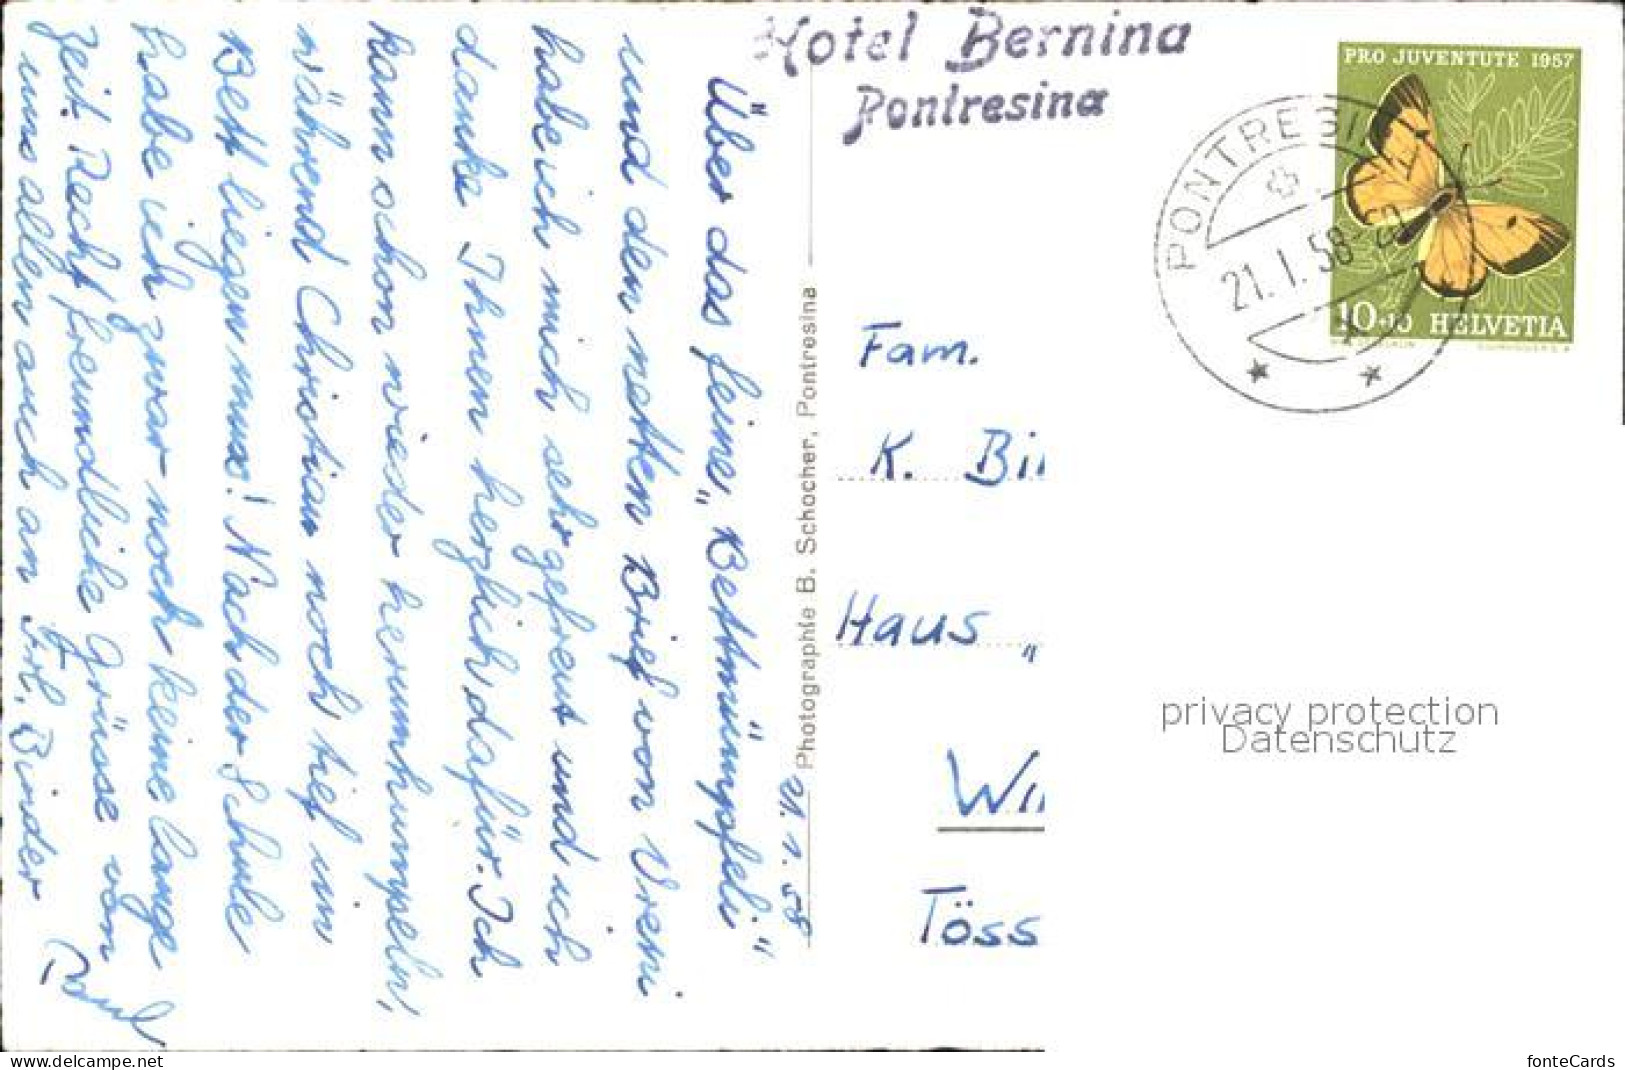 Hotel Bernina
Pontresina
PRO JUVENTUTE 1957
10+10 HELVETIA
PONTRESINA
21.I.58
21.1.58
Über das feine „Bettmümpfeli“
und den netten Brief von Vreni
habe ich mich sehr gefreut und ich
danke Ihnen herzlich dafür. Ich
kann schon wieder herumhumpeln,
während Christian noch tief im
Bett liegen muss! Nach der Schule
habe ich zwar noch keine lange
Zeit. Recht freundliche Grüsse von
uns allen auch an Frl. Binder
Photographie B. Schocher, Pontresina
Fam.
K. Bi
Haus „
Wi
Töss
privacy protection
Datenschutz
delcampe.net
fonteCards